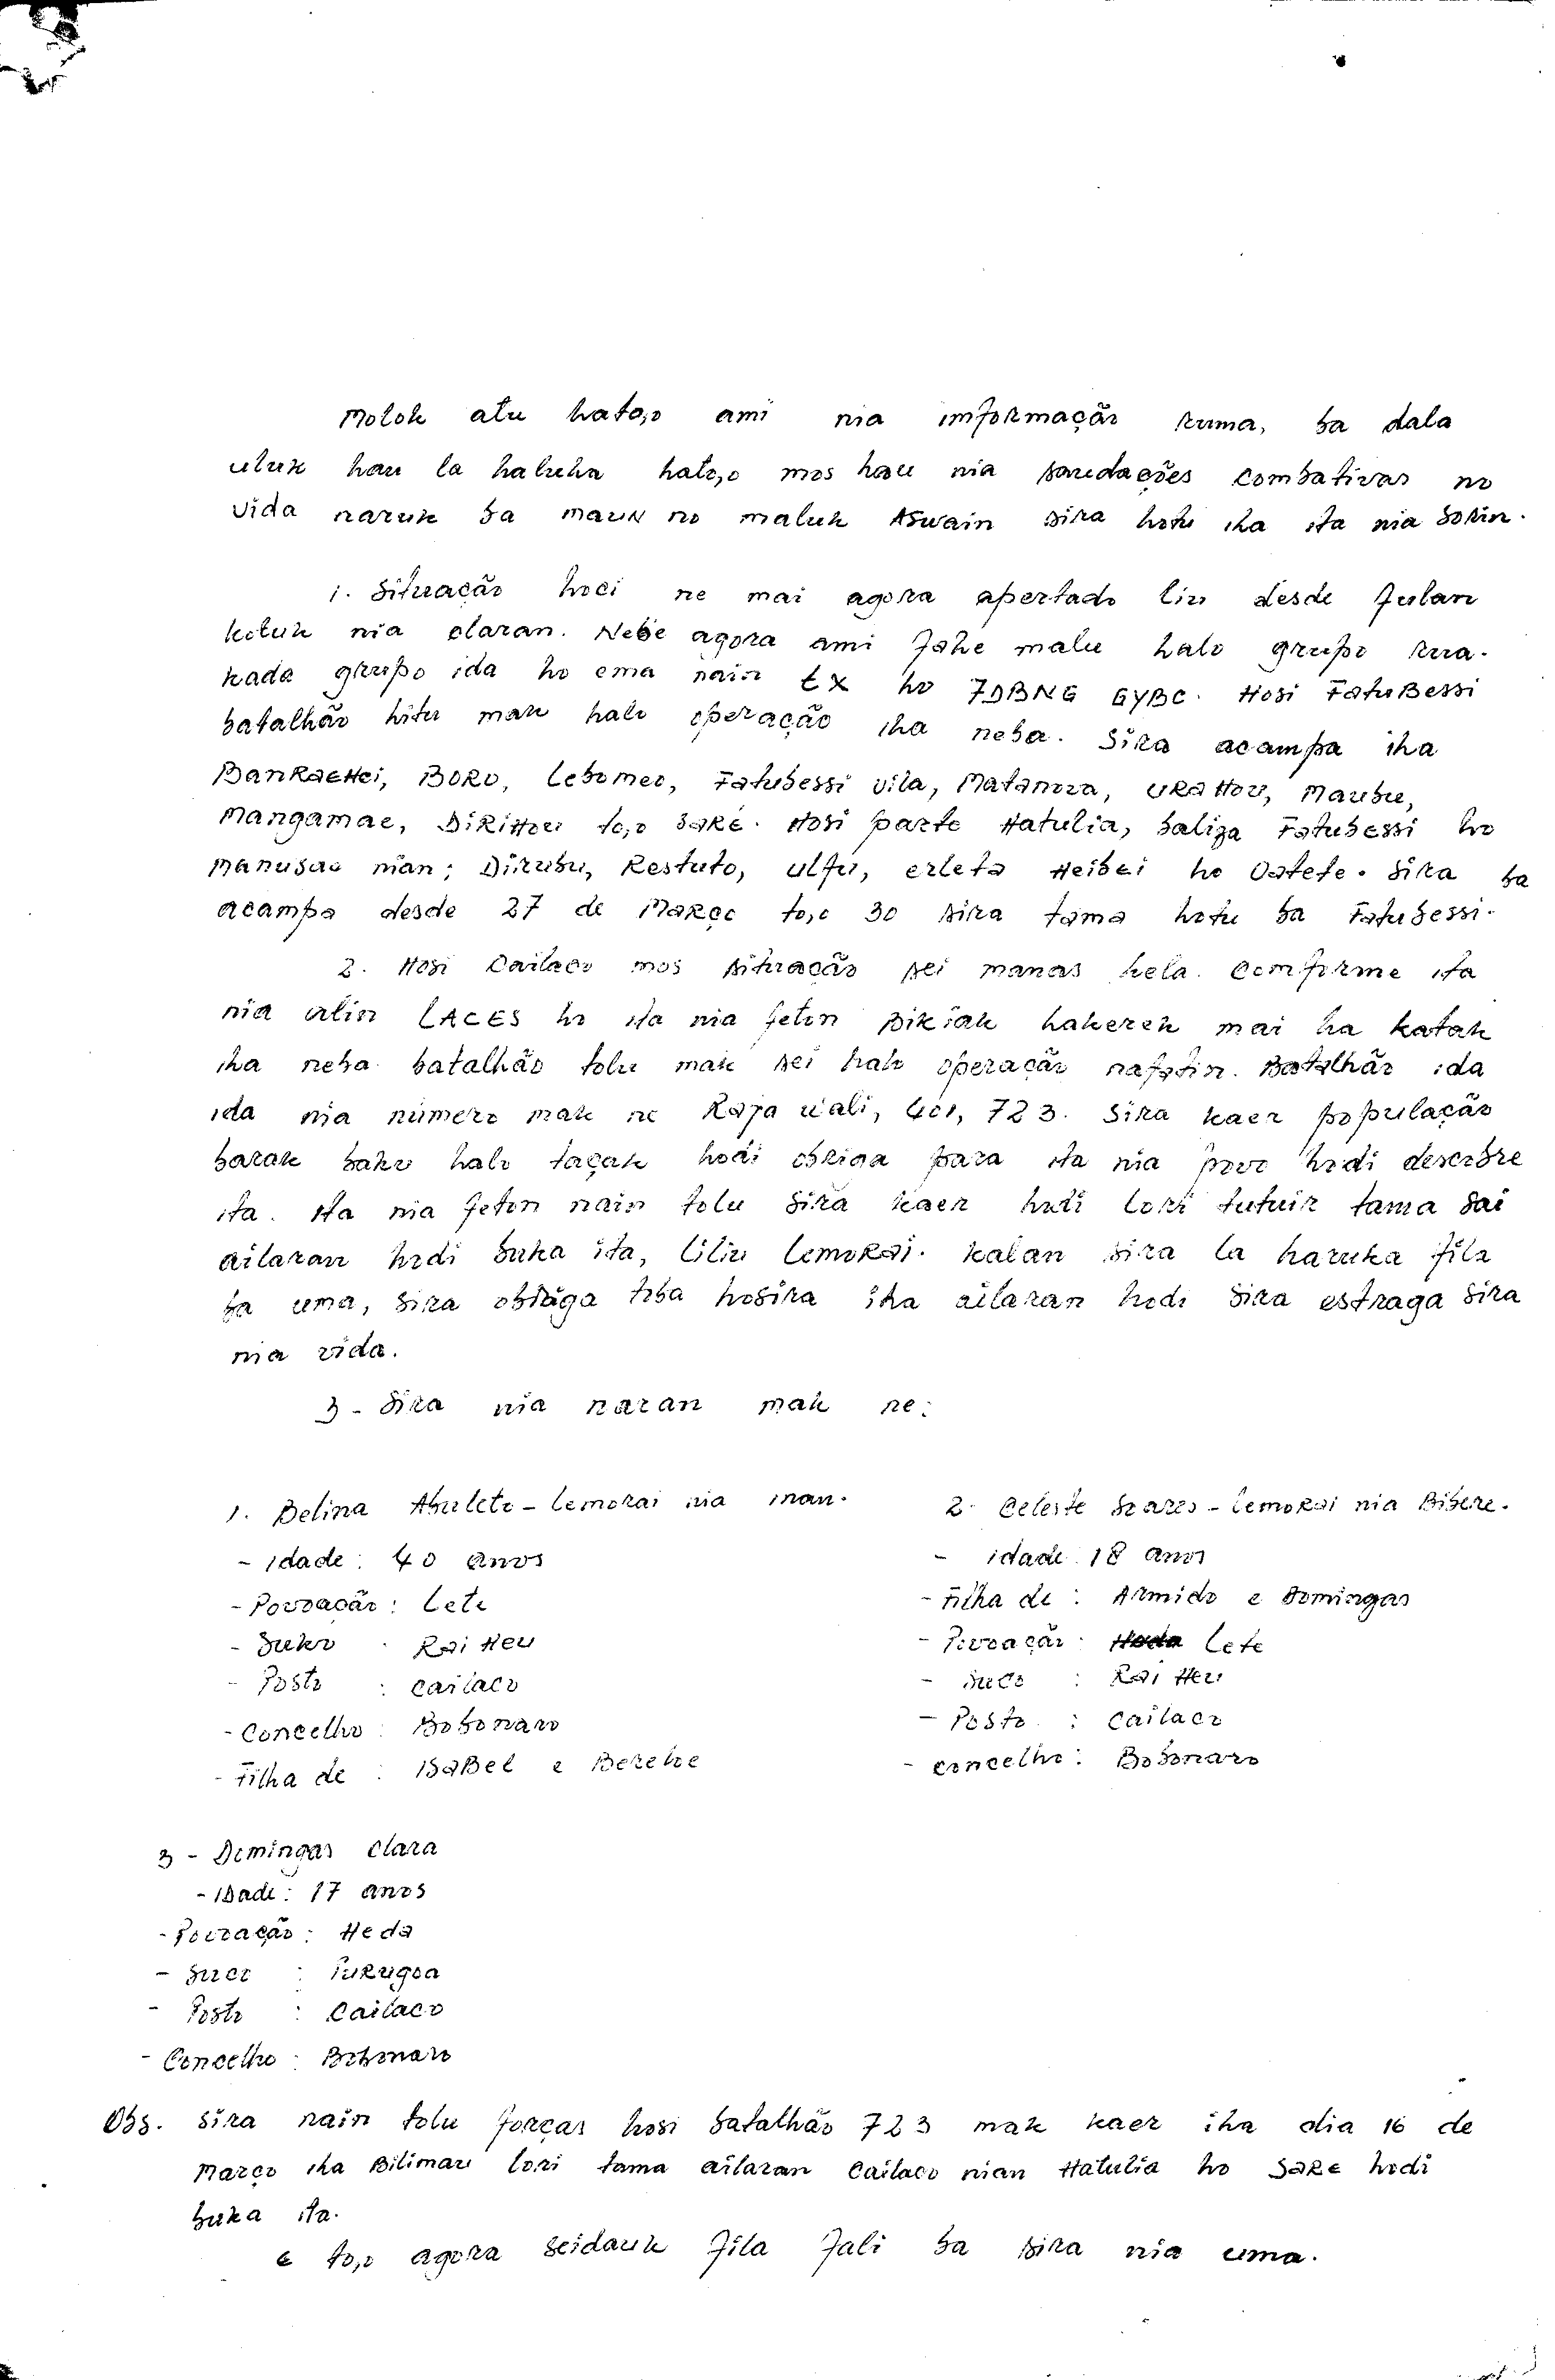 Molok atu hato,o ami nia imformação ruma, ba dala
uluk hau la haluha hato,o mos hau nia saudações combativas no
vida naruk ba maun no maluk Aswain sira hotu iha ita nia sorin.
1. Situação hoci ne mai agora apertado liu desde fulan
kotuk nia claran. Nebe agora ami fahe malu halo grupo rua.
kada grupo ida ho ema nain EX ho 7DBNG GYBC. Hosi FatuBessi
batalhão hitu mak halo operação iha neba. Sira acampa iha
BanRaeHei, BORO, Lebomeo, Fatubessi vila, Matanova, URaHou, Maubu,
Mangamae, DiRiHou to,o SaRé. Hosi parte Hatulia, baliza Fatubessi ho
Manusae nian; Dirubu, Restuto, ulfu, erleta Heibei ho Oatete. Sira ba
acampa desde 27 de Março to,o 30 sira tama hotu ba Fatubessi.
2. Hosi Cailaco mos situação sei manas hela. Comforme ita
nia alin LACES ho ita nia feton Bikiak hakerek mai ha katak
iha neba batalhão tolu mak sei halo operação nafatin. Batalhão ida
ida nia número mak ne Raja wali, 401, 723. Sira kaer população
barak baku halo taçak hodi obriga para ita nia povo hodi descobre
ita. Ita nia feton nain tolu sira kaer hodi lori tutuir tama sai
ailaran hodi buka ita, liliu LemoRai. Kalan sira la haruka fila
ba uma, sira obriga toba hosira iha ailaran hodi sira estraga sira
nia vida.
3 - Sira nia naran mak ne:
1. Belina Abuleto - Lemorai nia inan.
- Idade: 40 anos
- Povoação: Lete
- Suko : Rai Heu
- Posto : Cailaco
- Concelho : Bobonaro
- Filha de : ISaBel e Berehoe
2. Celeste Soares - LemoRai nia Bibere.
- idade: 18 anos
- Filha de : Armido e Domingas
- Povoação: Lete
- Suco : Rai Heu
- Posto : Cailaco
- Concelho: Bobonaro
3 - Domingas Clara
- Idade: 17 anos
- Povoação: Heda
- Suco : PuRugoa
- Posto : Cailaco
- Concelho : Bobonaro
Obs. Sira nain tolu forças hosi batalhão 723 mak kaer iha dia 16 de
Março iha Bilimau lori tama ailaran Cailaco nian Hatulia ho SaRe hodi
buka ita.
e to,o agora seidauk fila fali ba sira nia uma.